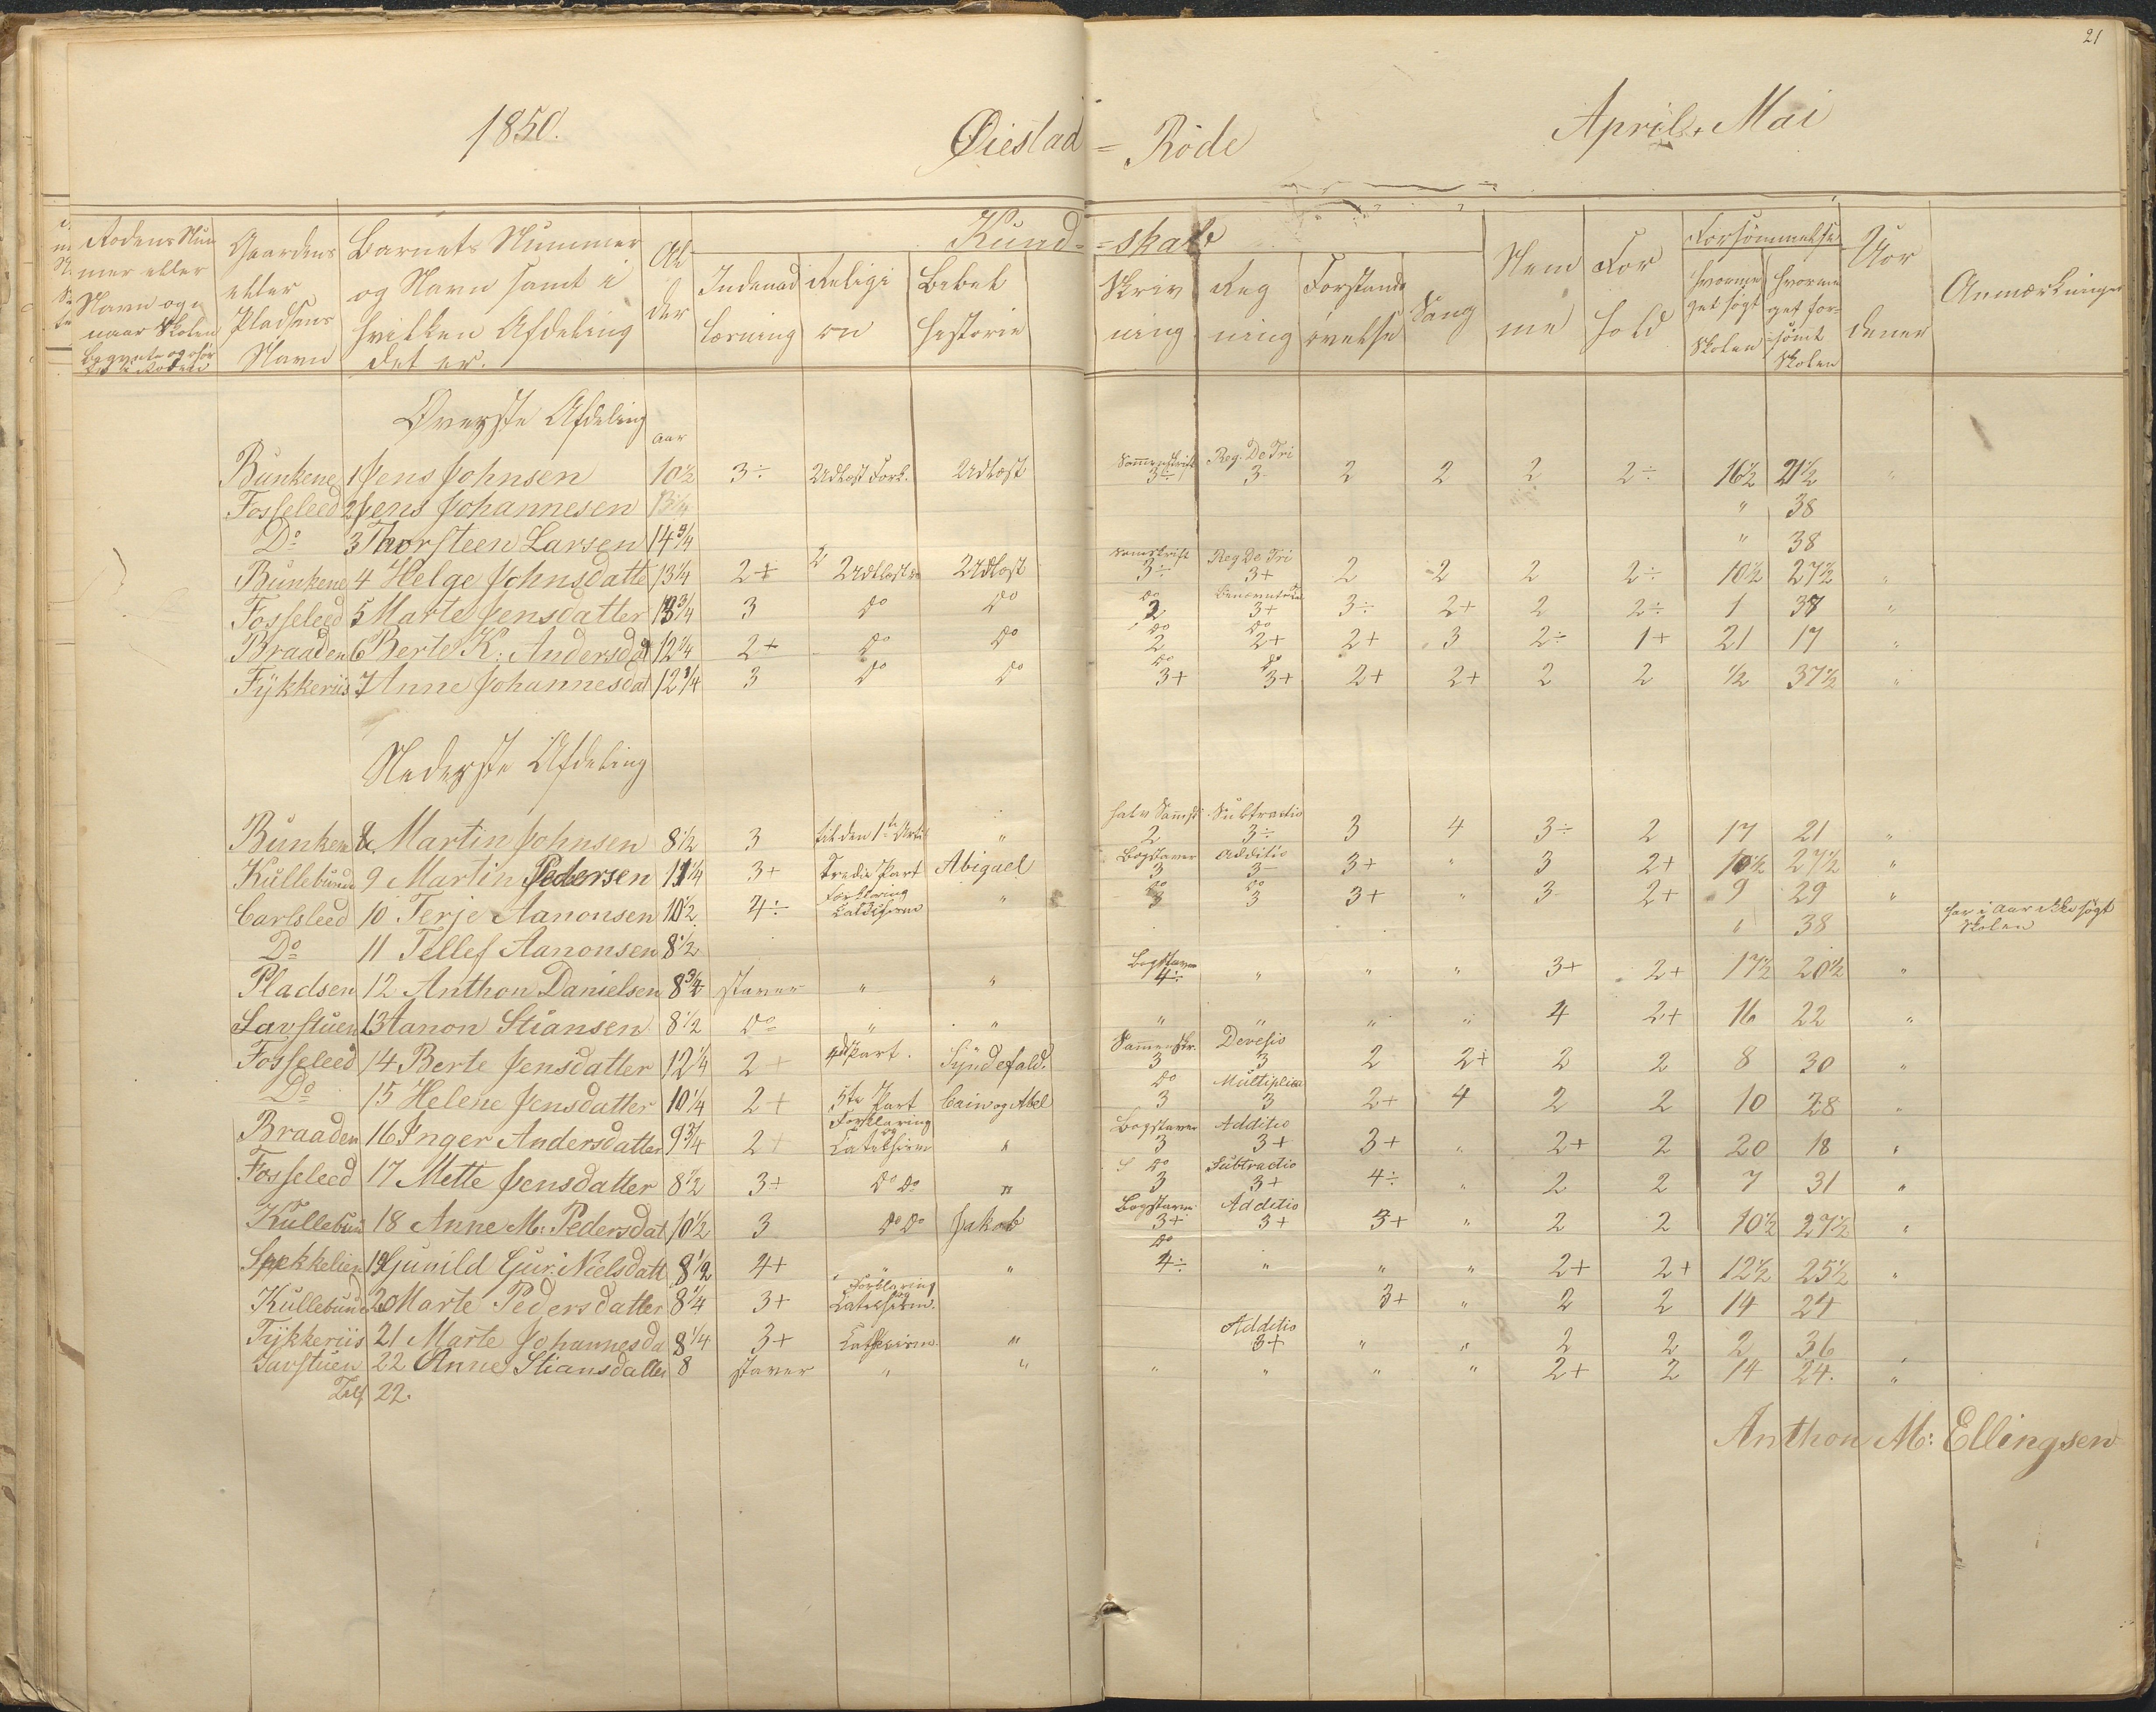 21
1850. Øiestad = Rode April. Mai
Rodens Num
mer eller
Navn og
naar Skolen
Gaardens
eller
Pladsens
Navn
Barnets Nummer
og Navn samt i
hvilken Afdeling
det er.
Al
der
Kund= =skab
Indenad
læsning
Religi
on
Bibel
historie
Skriv
ning
Reg
ning
Forstands
øvelse
Sang
Nem
me
For
hold
Forsømmelse
hvorme
get søgt
Skolen
hvorme
get for-
sømt
Skolen
Uor
dener
Anmærkninger
Øverste Afdeling
Aar
Bunkene 1 Jens Johnsen 10½ 3÷ Udlæst Fork. Udlæst Sammenskrift 3÷ Reg. De Tri 3 2 2 2 2÷ 16½ 21½ "
Fosseleed 2 Jens Johannesen 13¼ " 38
Do 3 Thorsteen Larsen 14¾ " 38
Bunkene 4 Helge Johnsdatte 13¼ 2+ Udlæst Udlæst Samskrift 3÷ Reg De Tri 3+ 2 2 2 2÷ 10½ 27½ "
Fosseleed 5 Marte Jensdatter 13¾ 3 Do Do Do 2 3+ 3÷ 2+ 2 2÷ 1 37 "
Braaden 6 Berte K: Andersdat 12¼ 2+ Do Do Do 2 Do 2+ 2+ 3 2÷ 1+ 21 17 "
Fykkeriis 7 Anne Johannesdat 12¾ 3 Do Do Do 3+ Do 3+ 2+ 2+ 2 2 ½ 37½ "
Nederste Afdeling
Bunken 8 Martin Johnsen 8½ 3 til den 1ste Artik " halv Samsk 2 Subtractio 3÷ 3 4 3÷ 2 17 21 "
Kullebund 9 Martin Pedersen 11¼ 3+ Tredie Part Abiguel Bogstaver 3 Additio 3- 3+ " 3 2+ 10½ 27½ "
Carlsleed 10 Terje Aanonsen 10½ 4÷ Forklaring " Do 3 Do 3 3+ " 3 2+ 9 29 "
Do 11 Tellef Aanonsen 8½ " 38 har i Aar ikke søgt
Skolen
Pladsen 12 Anthon Danielsen 8¾ staver " " Bogstaver 4÷ " " " 3+ 2+ 17½ 20½ "
Lavstuen 13 Aanon Stiansen 8½ Do " " " " " " 4 2+ 16 22 "
Fosseleed 14 Berte Jensdatter 12¼ 2+ 4de Part. Syndefald. Sammenskr. 3 Devesio 3 2 2+ 2 2 8 30 "
Do 15 Helene Jensdatter 10¼ 2+ 5te Part Cain og Abel Do 3 Multiplica 3 2+ 4 2 2 10 28 "
Braaden 16 Inger Andersdatter 9¾ 2+ Forklaring og Catekhism " Bogstaver 3 Additio 3+ 3+ " 2+ 2 20 18 "
Fosseleed 17 Mette Jensdatter 8½ 3+ Do Do " Do 3 Subtractio 3+ 4÷ " 2 2 7 31 "
Kullebun 18 Anne M: Pedersdat 10½ 3 Do Do Jakob Bogstaver 3+ Additio 3+ 3+ " 2 2 10½ 27½ "
19 Gunild Gur: Nielsdatt 8½ 4+ " " Do 4÷ " " " 2+ 2+ 12½ 25½ "
Kullebund 20 Marte Pedersdatter 8¼ 3+ Forklaring og Catekhism. 3+ " 2 2 14 24
Fykkeriis 21 Marte Johannesda 8¼ 3+ Catekhism. " Additio 3+ " " 2 2 2 36 "
Lavstuen 22 Anne Stiansdatter 8 staver " " " " " " 2+ 2 14 24. "
22.
Anthon M: Ellingsen